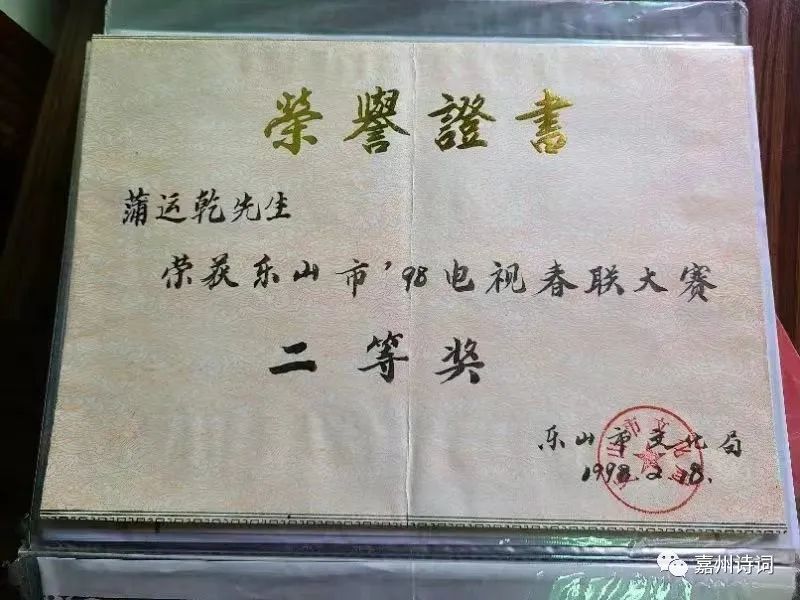 榮譽證書
蒲运乾先生
荣获乐山市'98电视春联大赛
二等奖
乐山市文化局
1998.2.18.
嘉州诗词